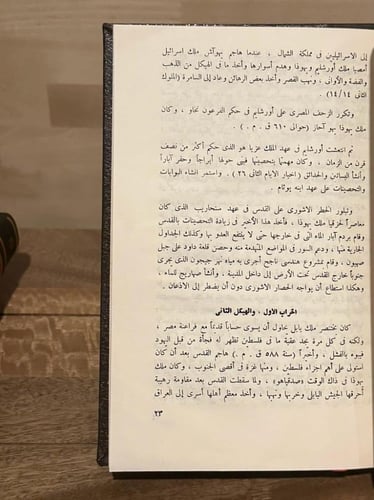 إلى الاسرائيليين فى مملكة الشمال ، عندما هاجم يهوآش ملك إسرائيل
أمصيا ملك أورشليم ويهوذا وهدم أسوارها وأخذ ما فى الهيكل من الذهب
والفضة والأوانى ، ونهب القصر وأخذ بعض الرهائن وعاد إلى السامرة (الملوك
الثانى ١٤/١٤)
وتكرر الزحف المصرى على أورشليم فى حكم الفرعون نخاو ، وكان
ملك يهوذا يهو آحاز (حوالى ٦١٠ ق . م .) .
ثم انتعشت أورشليم فى عهد الملك عزيا هو الذى حكم أكثر من نصف
قرن من الزمان ، وكان مهتمًا بتحصينها فبنى حولها أبراجًا وحفر آبارًا
وأنشأ البساتين والحدائق (أخبار الأيام الثانى ٢٦) . واستمر انشاء البوابات
والتحصينات على عهد ابنه يوثام .
وتبلور الخطر الاشورى على القدس فى عهد سنحاريب الذى كان
معاصراً لحزقيا ملك يهوذا . فأخذ هذا الأخير فى زيادة التحصينات بالقدس
وقام بردم آبار الماء التى فى خارجها حتى لا ينتفع العدو بها وكذلك الجداول
الجارية منها ، ودعم السور فى المواضع المتهدمة منه وحصن قلعة داود على جبل
صهيون . وقام بمشروع هندسى ناجح أجرى به مياه نهر جيحون الذى يجرى
جنوبا خارج القدس تحت الأرض إلى داخل المدينة . وأنشأ صهاريج للماء ،
وهكذا استطاع أن يواجه الحصار الاشورى دون أن يضطر إلى الاذعان .
الخراب الأول ، والهيكل الثانى
كان بختنصر ملك بابل يحاول أن يسوى حسابًا قديمًا مع فراعنة مصر ،
ولكنه فى كل مرة يجد عقبة ما فى فلسطين تظهر له فجأة من قبل اليهود
فيبوء بالفشل ، وأخيرًا (سنة ٥٨٨ ق . م .) هاجم القدس بعد أن كان
استولى على أهم اجزاء فلسطين ، ومنها غزة فى أقصى الجنوب ، وكان ملك
يهوذا فى ذاك الوقت «صدقياهو» ، ولما سقطت القدس بعد مقاومة رهيبة
أحرقها الجيش البابلى وخربها ونهبها ، وأخذ معظم أهلها أسرى إلى العراق
٢٣